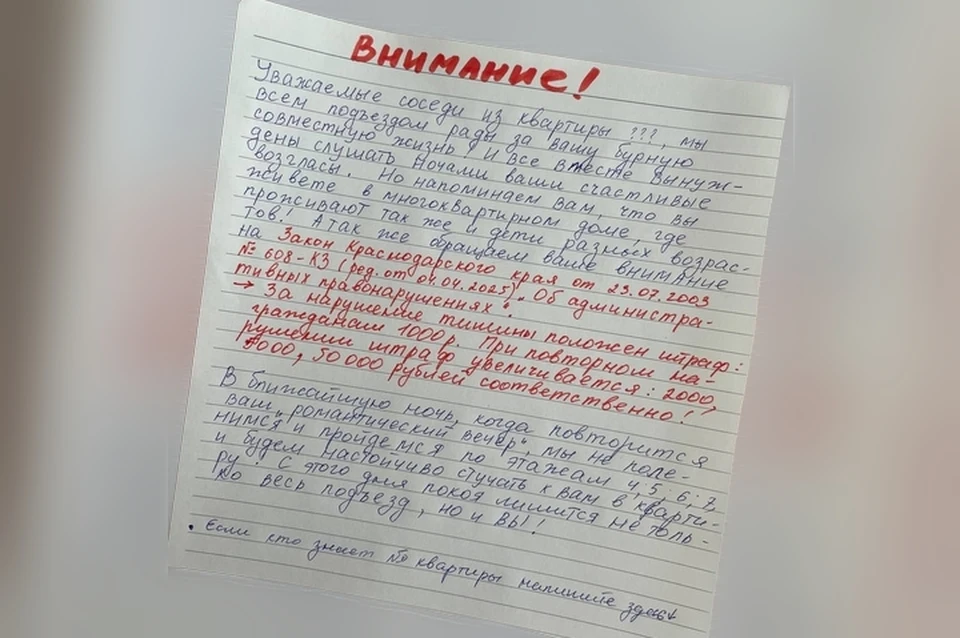 ВНИМАНИЕ!
Уважаемые соседи из квартиры ???, мы
всем подъездом рады за вашу бурную
совместную жизнь! И все вместе вынуж-
дены слушать ночами ваши счастливые
возгласы. Но напоминаем вам, что вы
живете в многоквартирном доме, где
проживают так же и дети разных возрас-
тов! А так же обращаем ваше внимание
на Закон Краснодарского края от 23.07.2003
№ 608-КЗ (ред. от 04.04.2025)„ Об администра-
тивных правонарушениях".
→ За нарушение тишины положен штраф:
гражданам 1000 р. При повторном на-
рушении штраф увеличивается: 2000,
5000, 50 000 рублей соответственно!
В ближайшую ночь, когда повторится
ваш „романтический вечер", мы не поле-
нимся и пройдемся по этажам 4, 5, 6, 7,
и будем настойчиво стучать к вам в кварти-
ру. С этого дня покоя лишится не толь-
ко весь подъезд, но и ВЫ!
• Если кто знает № квартиры напишите здесь↓